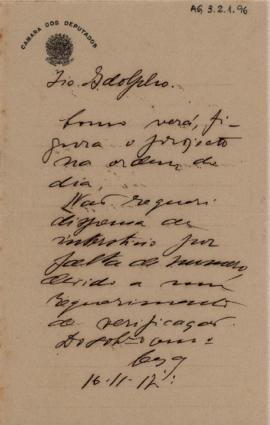 AG, 3.2.1.96
CAMARA DOS DEPUTADOS
Tio Adolpho.
Como verá, fi-
gura o projecto
na ordem do
dia.
Não requeri
dispensa de
intersticio por
falta de numero,
devido a um
requerimento
de verificação.
Do sobr.º am.º
16-11-17.